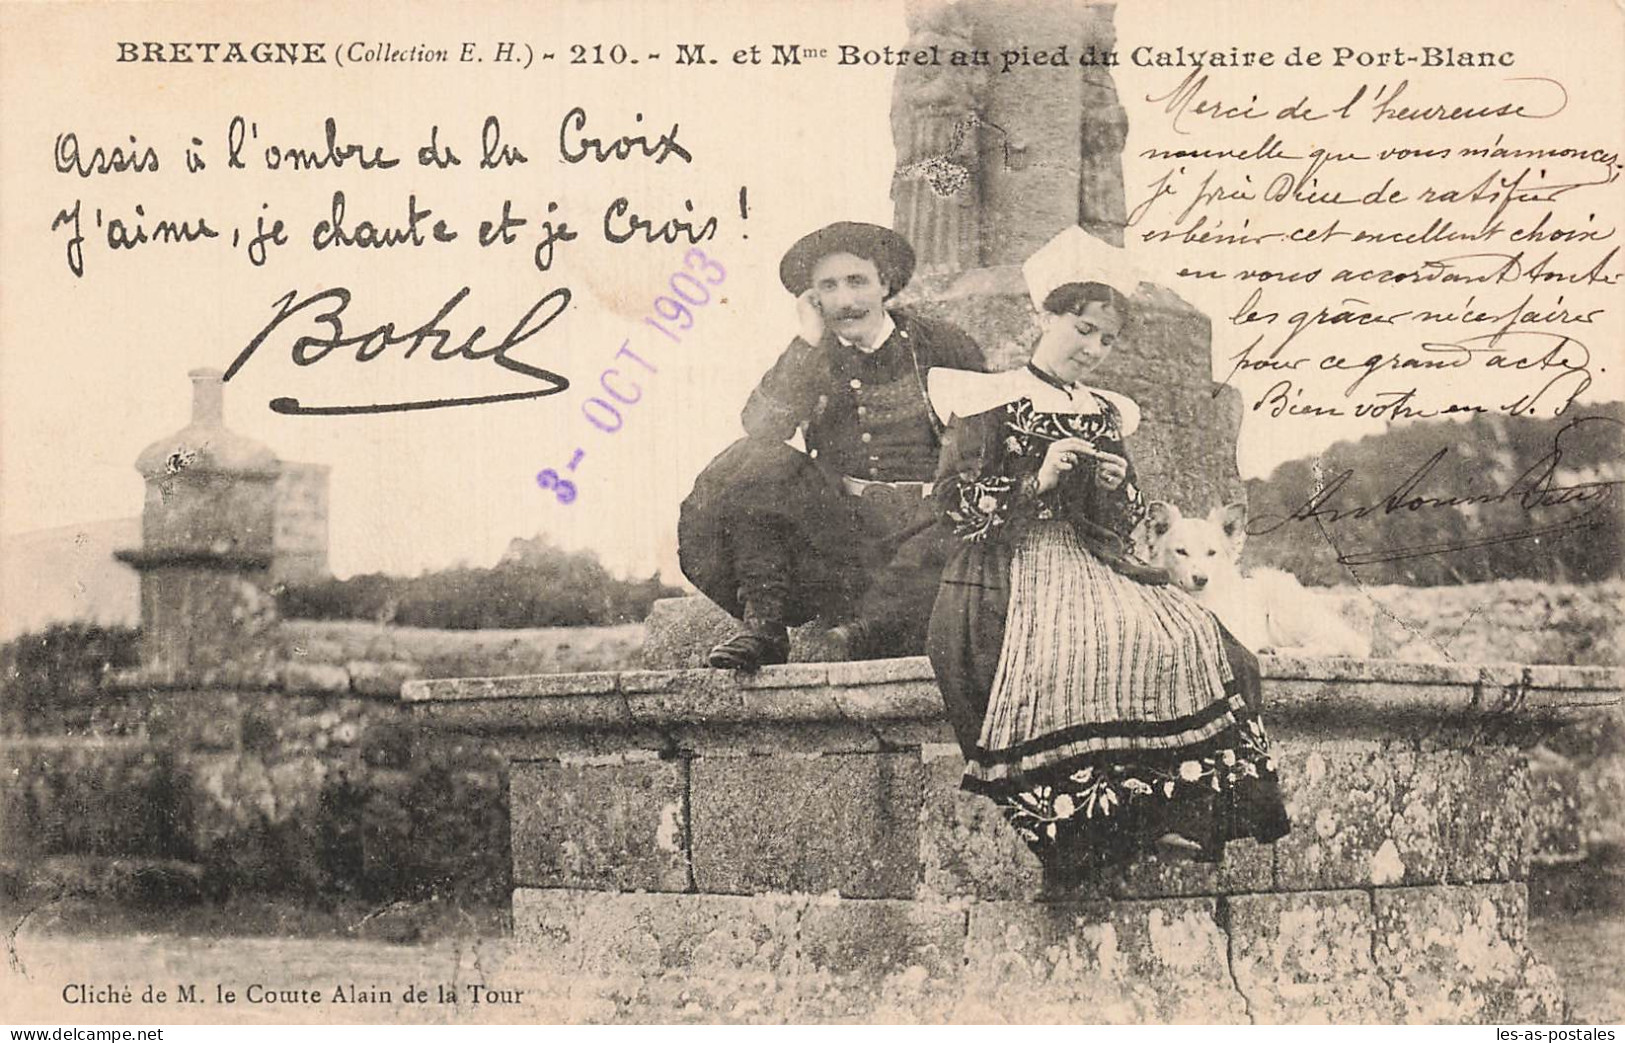 BRETAGNE (Collection E. H.) - 210. - M. et Mme Botrel au pied du Calvaire de Port-Blanc
Assis à l'ombre de la Croix
J'aime, je chante et je Crois !
Botrel
3- OCT 1903
Merci de l'heureuse
nouvelle que vous m'annoncez,
je prie Dieu de ratifier
et bénir cet excellent choix
en vous accordant toutes
les grâces nécessaires
pour ce grand acte.
Bien votre en N. S
Antonin
Cliché de M. le Comte Alain de la Tour
delcampe.net
les-as-postales